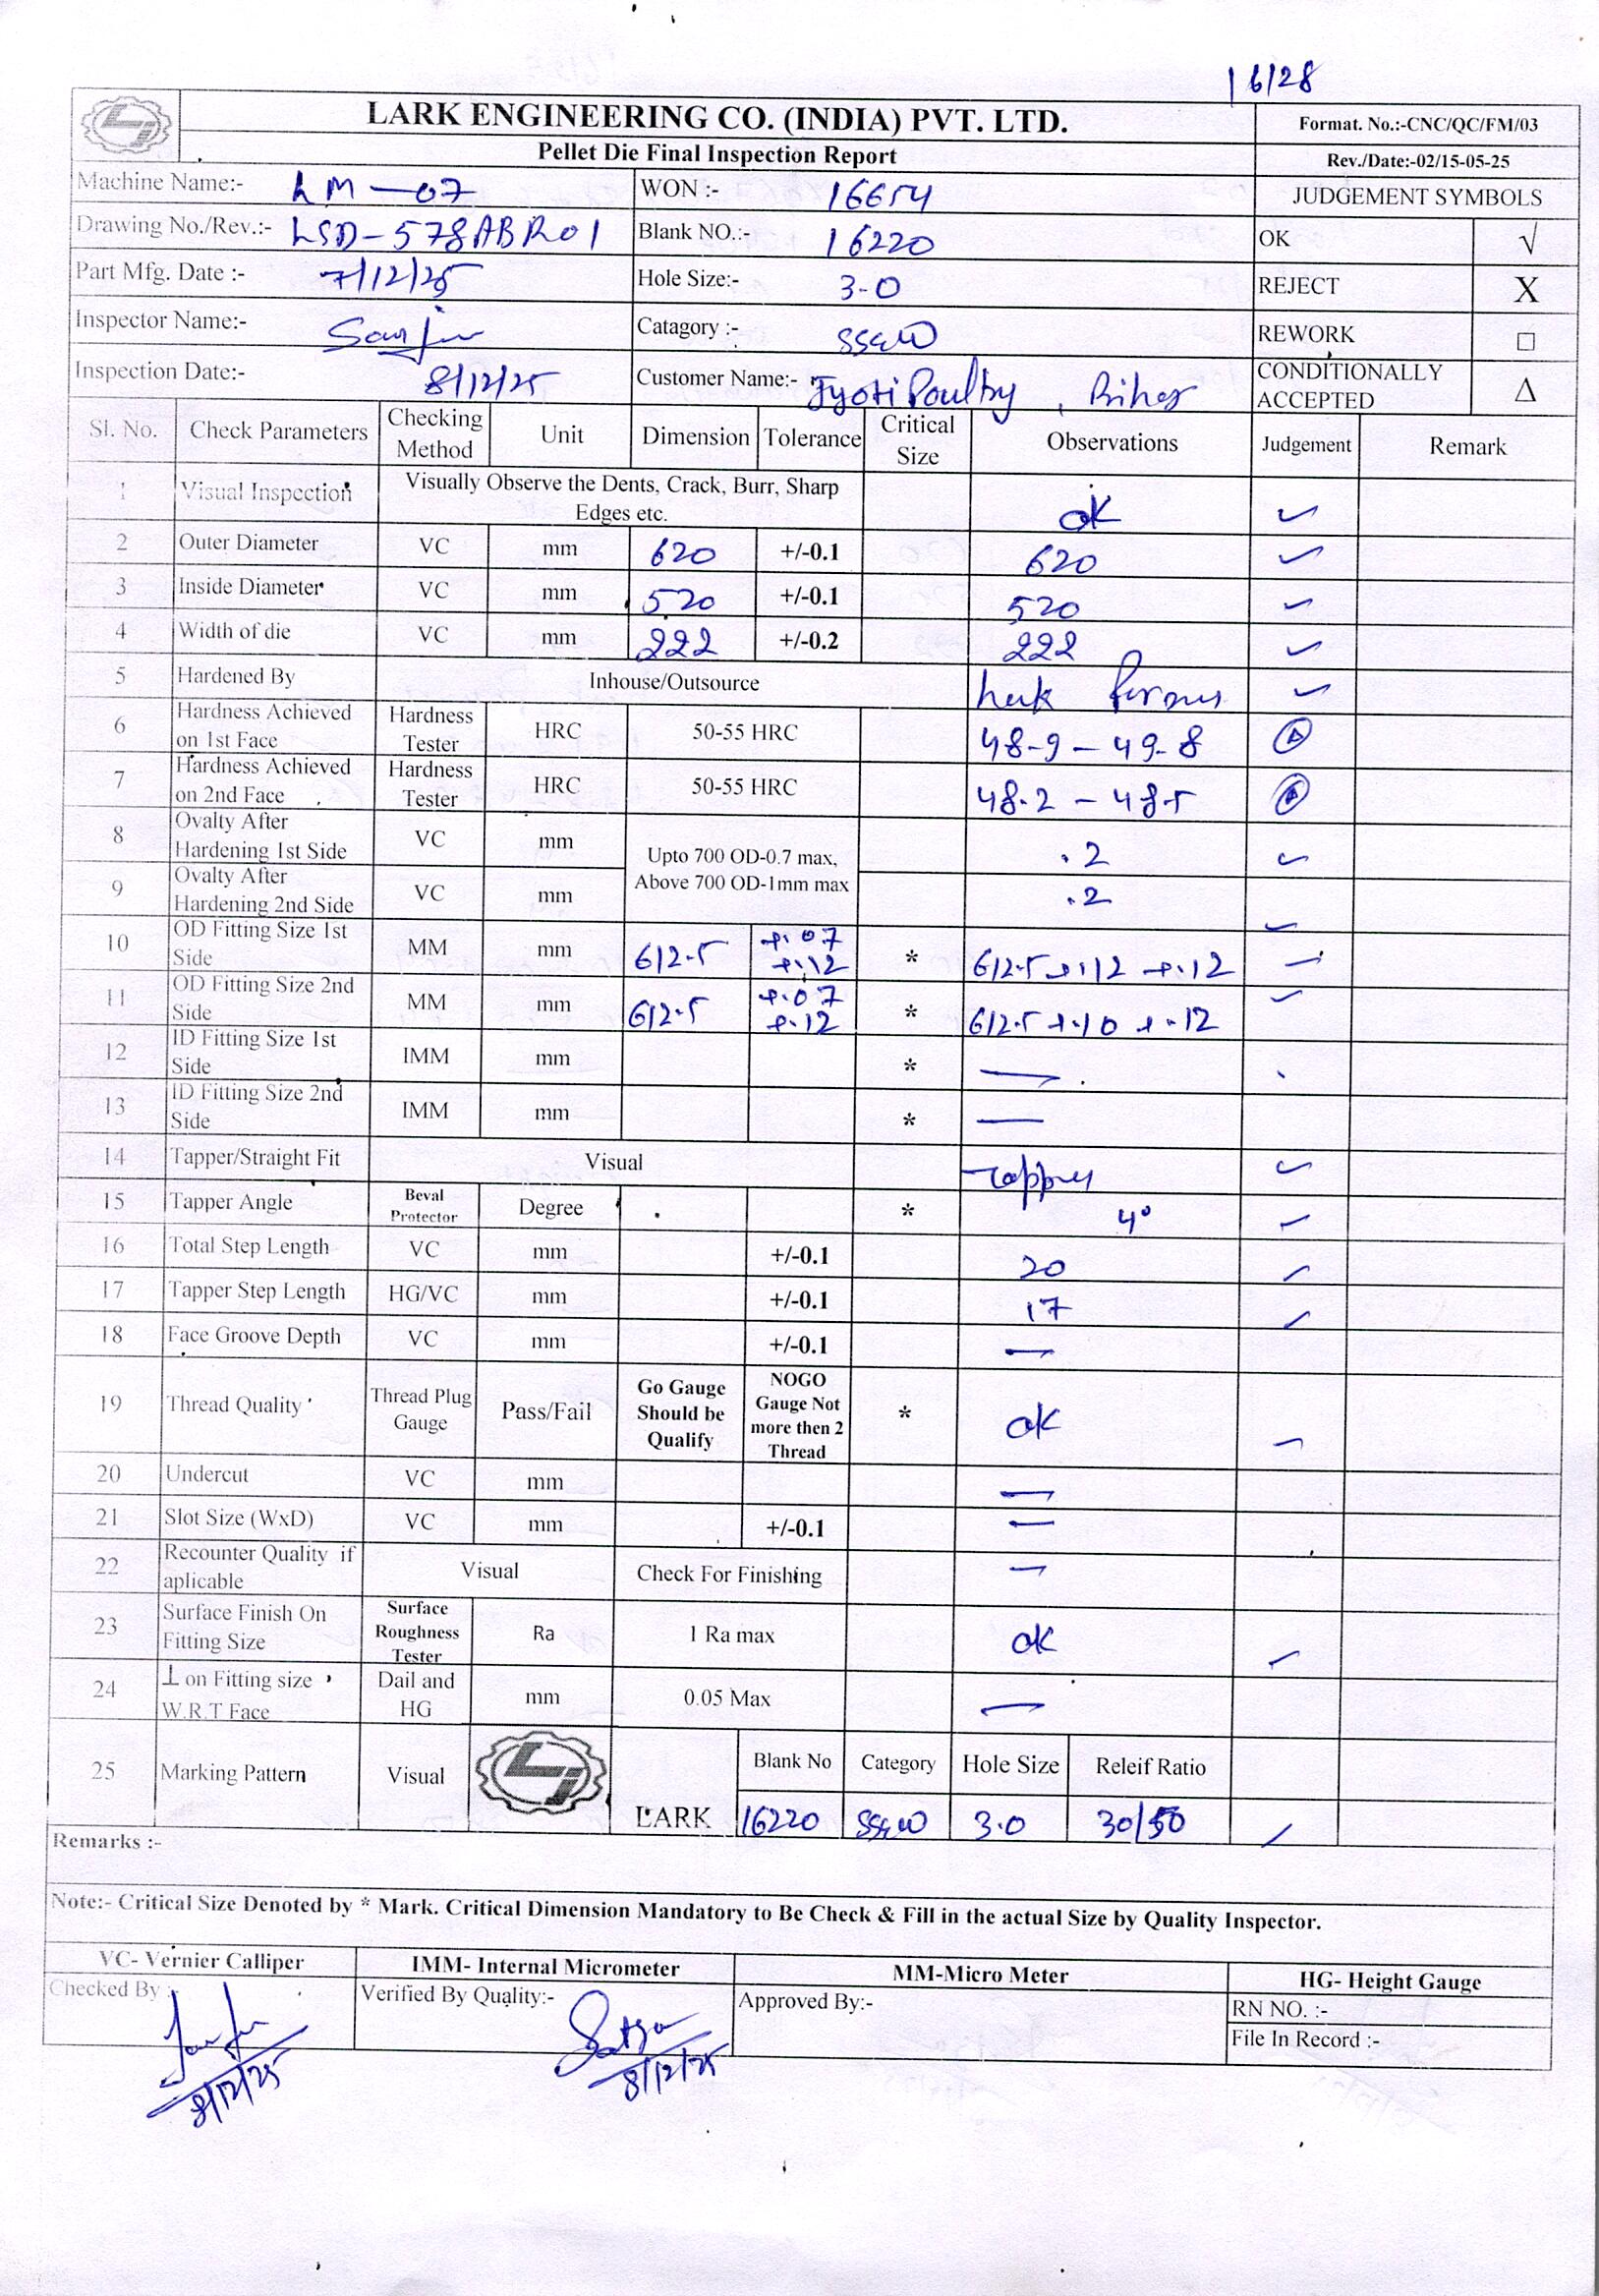 16/28
LARK ENGINEERING CO. (INDIA) PVT. LTD.
Format. No.:-CNC/QC/FM/03
Pellet Die Final Inspection Report
Rev./Date:-02/15-05-25
Machine Name:- LM-07 WON :- 16654 JUDGEMENT SYMBOLS
Drawing No./Rev.:- LSD-578ABR01 Blank NO.:- 16220 OK √
Part Mfg. Date :- 7/12/25 Hole Size:- 3.0 REJECT X
Inspector Name:- Catagory :- REWORK □
Inspection Date:- 8/12/25 Customer Name:- Jyoti Poultry, Bihar CONDITIONALLY ACCEPTED Δ
Sl. No. Check Parameters Checking Method Unit Dimension Tolerance Critical Size Observations Judgement Remark
1 Visual Inspection Visually Observe the Dents, Crack, Burr, Sharp Edges etc. ok ✓
2 Outer Diameter VC mm 620 +/-0.1 620 ✓
3 Inside Diameter VC mm 520 +/-0.1 520 ✓
4 Width of die VC mm 222 +/-0.2 222 ✓
5 Hardened By Inhouse/Outsource ✓
6 Hardness Achieved on 1st Face Hardness Tester HRC 50-55 HRC 48.9 - 49.8
7 Hardness Achieved on 2nd Face Hardness Tester HRC 50-55 HRC 48.2 - 48.5
8 Ovalty After Hardening 1st Side VC mm Upto 700 OD-0.7 max, Above 700 OD-1mm max .2 ✓
9 Ovalty After Hardening 2nd Side VC mm .2 ✓
10 OD Fitting Size 1st Side MM mm 612.5 +.07 +.12 * 612.5 +.12 +.12 ✓
11 OD Fitting Size 2nd Side MM mm 612.5 +.07 +.12 * 612.5 +.10 +.12 ✓
12 ID Fitting Size 1st Side IMM mm * —
13 ID Fitting Size 2nd Side IMM mm * —
14 Tapper/Straight Fit Visual Tapper ✓
15 Tapper Angle Beval Protector Degree * 4° ✓
16 Total Step Length VC mm +/-0.1 20 ✓
17 Tapper Step Length HG/VC mm +/-0.1 17 ✓
18 Face Groove Depth VC mm +/-0.1 —
19 Thread Quality Thread Plug Gauge Pass/Fail Go Gauge Should be Qualify NOGO Gauge Not more then 2 Thread * ok ✓
20 Undercut VC mm —
21 Slot Size (WxD) VC mm +/-0.1 —
22 Recounter Quality if aplicable Visual Check For Finishing —
23 Surface Finish On Fitting Size Surface Roughness Tester Ra 1 Ra max ok ✓
24 ⊥ on Fitting size W.R.T Face Dail and HG mm 0.05 Max —
25 Marking Pattern Visual LARK Blank No Category Hole Size Releif Ratio
16220 3.0 30/50 ✓
Remarks :-
Note:- Critical Size Denoted by * Mark. Critical Dimension Mandatory to Be Check & Fill in the actual Size by Quality Inspector.
VC- Vernier Calliper IMM- Internal Micrometer MM-Micro Meter HG- Height Gauge
Checked By :- Verified By Quality:- Approved By:- RN NO. :-
File In Record :-
8/12/25 8/12/25